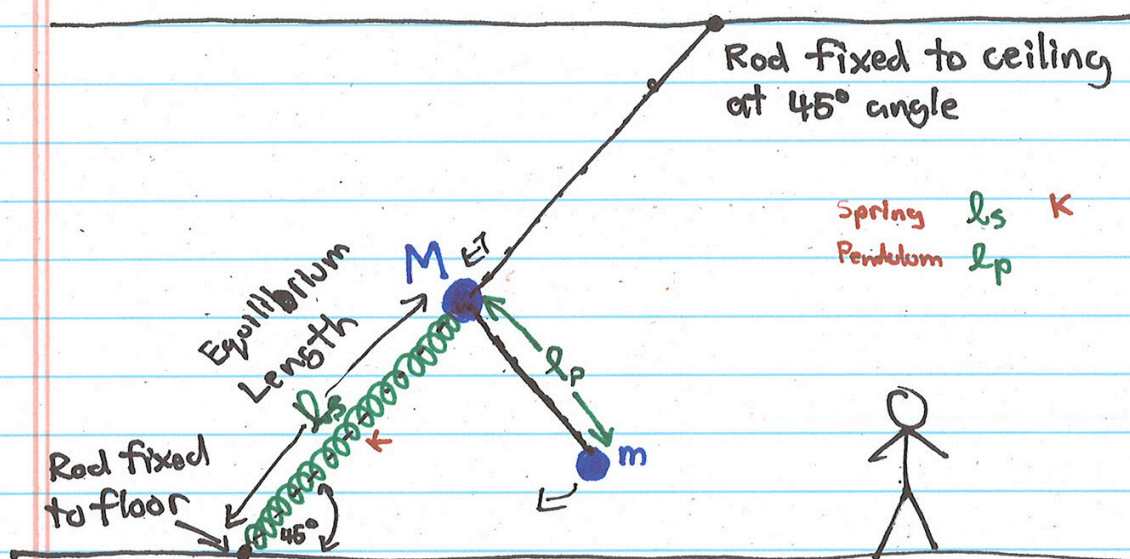 Rod fixed to ceiling
at 45° angle
Spring ls K
Pendulum lp
M
Equilibrium
Length
ls
lp
K
m
Rod fixed
to floor
45°